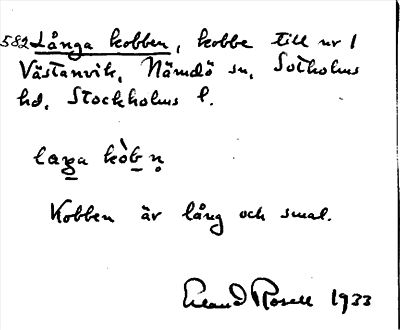 582 Långa kobben, kobbe till nr 1
Västanvik, Nämdö sn, Sotholms
hd, Stockholms l.
laŋa kòb n̥
Kobben är lång och smal.
Erland Rosell 1933